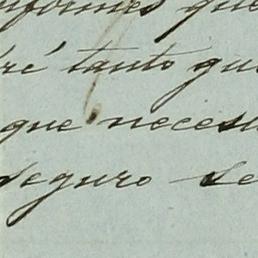 nformes que
ré tanto gu
que neces
seguro se